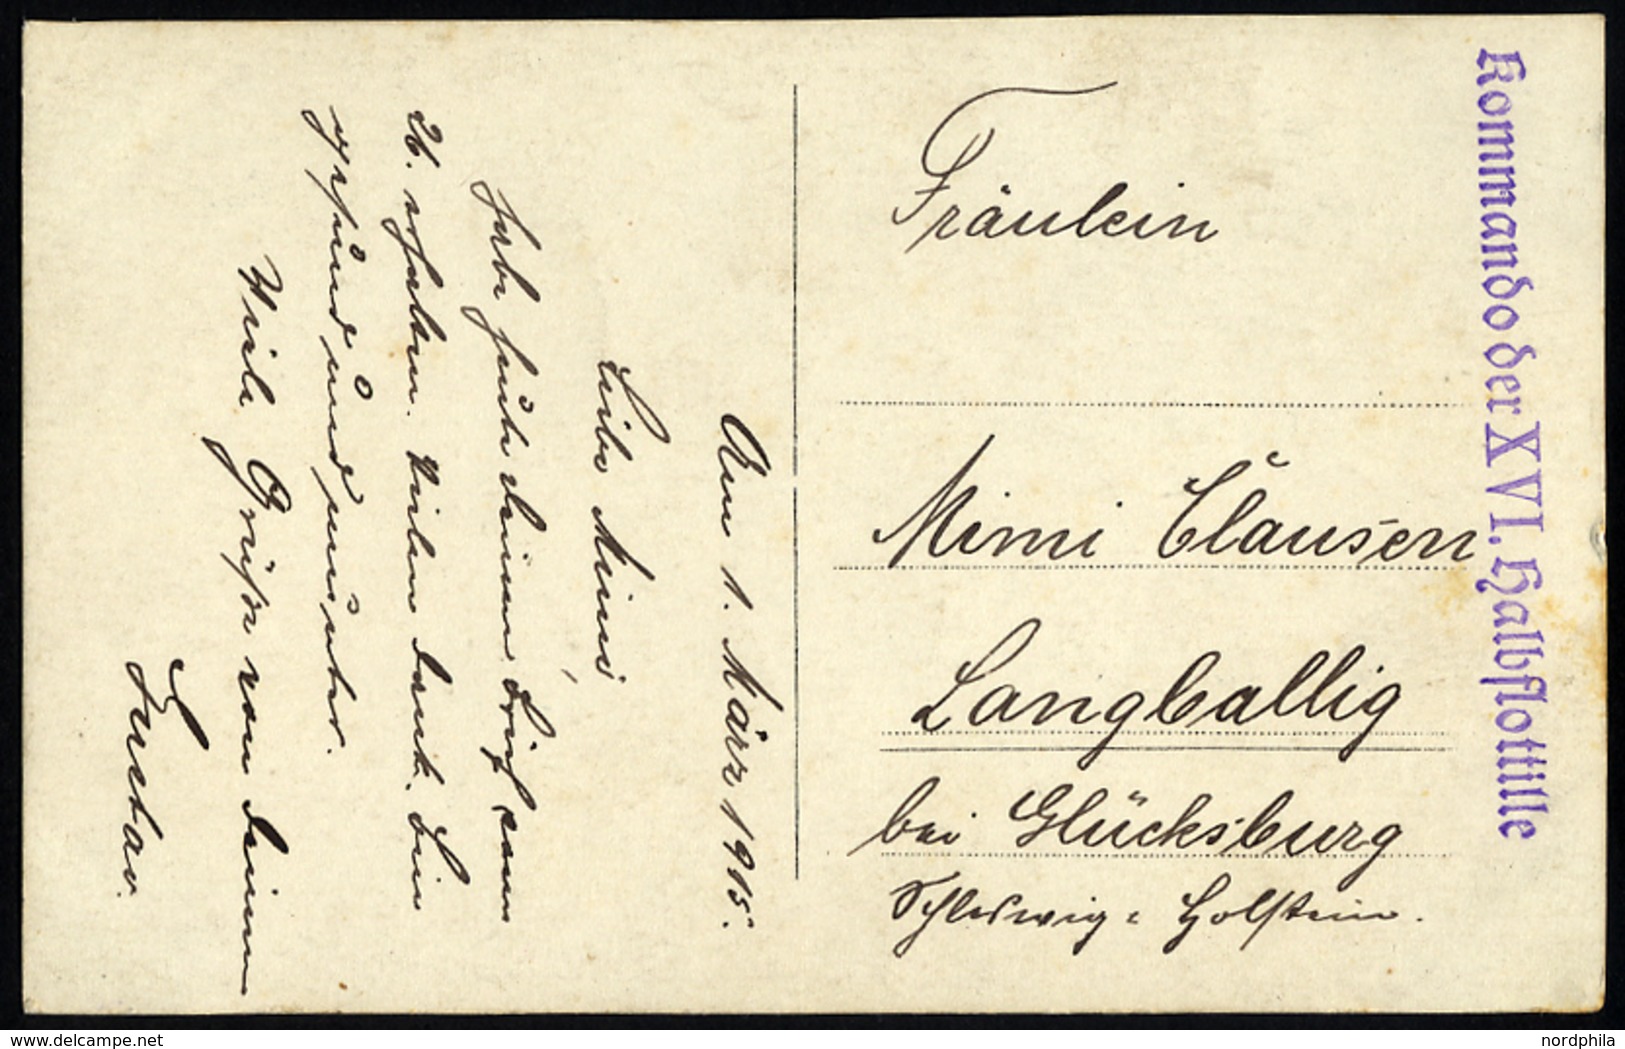 Am 1. März 1915.
Liebe Mimi,
habe heute deinen Brief vom
26. erhalten. Vielen Dank. Bin
gesund und munter.
Viele Grüße von deinem
Gustav.
Fräulein
Mimi Clausen
Langballig
bei Glücksburg
Schleswig = Holstein.
Kommando der XVI. Halbflottille
delcampe.net
nordphila